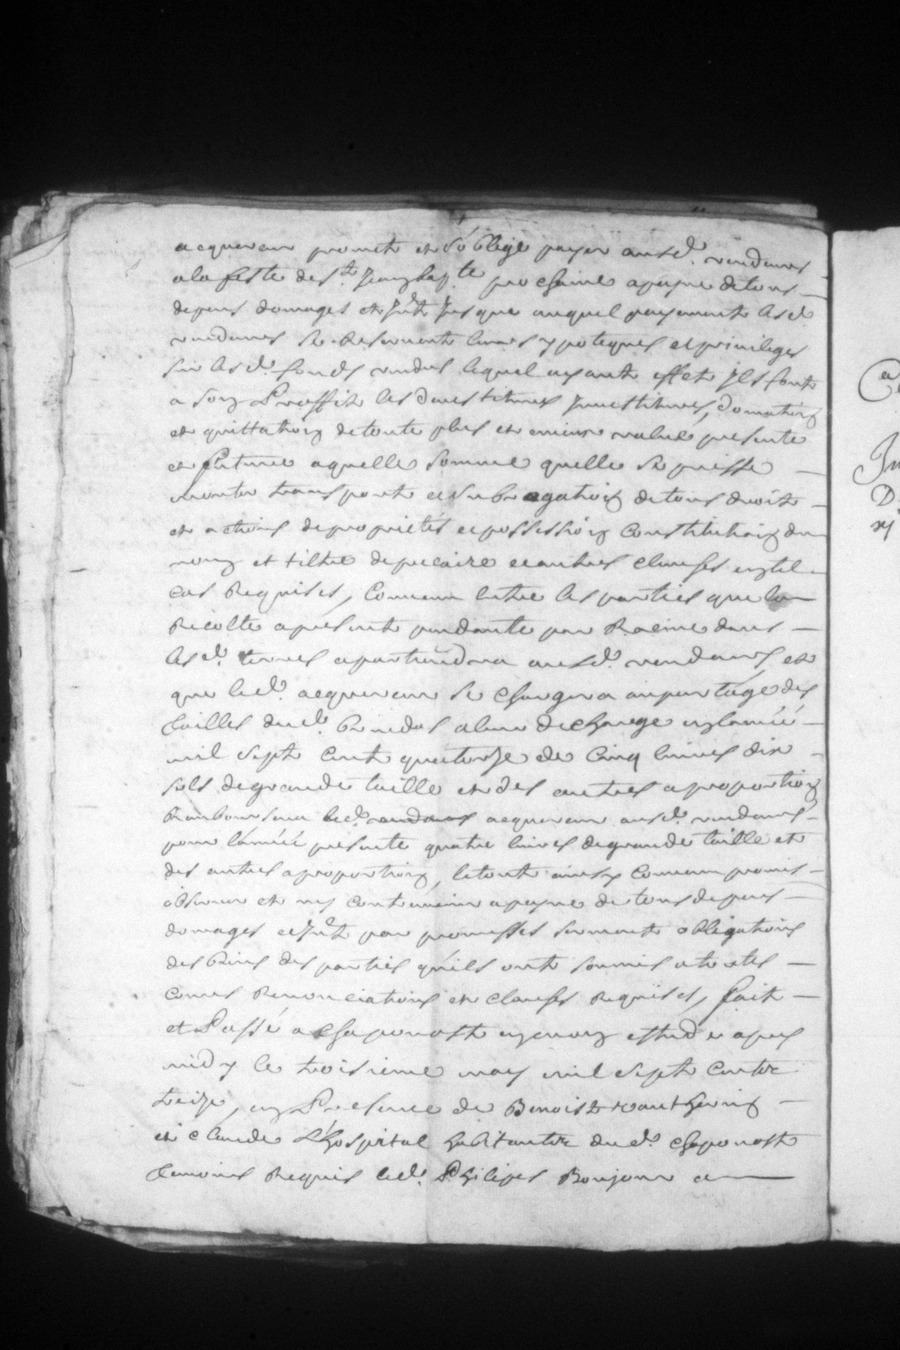 acquereur promet et s'oblige payer ausd. vendeurs
a la feste de St. Jean bapte prochaine a payne de tous
depens domages et Jnt Jusque auquel payement lesd.
vendeurs se reservent leurs ypoteques et privileges
sur lesd. fonds vendus lequel ayant effet Jls font
a son Proffit les devestitures Jnvestitures, donation
et quittation de toute plus et mieux value presente
et future a quelle somme quelle se puisse
monter transporte et subrogation de tous droits
et actions de propriétés et possession Constitution du
nom et tiltre de precaire et autres clauses en tel
cas Requises, Convenu entre les parties que la
Recolte a present pendante par Racine dans
lesd. terres apartiendra ausd. vendeurs, et
que led. acquereur se chargera au partage des
tailles dud. Brindas a leur decharge en lannéé
mil sept cent quatorze de Cinq livres dix
sols de grande taille et des autres a proportion
Remboursera led. acquereur ausd. vendeurs
pour lannéé presente quatre livres de grande taille et
des autres a proportion, le tout ainsy Convenu promis
observer et ny contrevenir a payne de tous depens
domages et Jnt par promesses serment obligations
des Biens des parties qu'ils ont soumis a toutes
Cours Renonciations et clauses Requises, fait
et Passé a Chaponost en mon estude apres
midy le troisieme may mil sept cent
treize, en Presence de Benoist
et claude L'hospital habitant dud. chaponost
temoins Requis led. Philipes Bonjour a